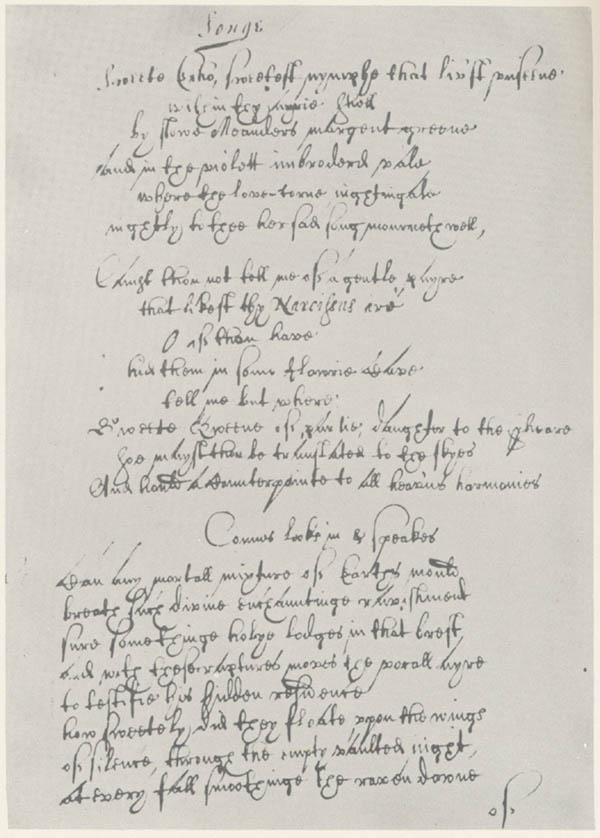 Songe
Sweete Echo, sweetest nymphe that liv'st vnseene
within thy ayrie shell
by slowe Meanders margent greene
And in the violett imbroderd vale
where the love-lorne nightingale
nightly to thee her sad song mourneth well,
Canst thou not tell me of a gentle payre
that likest thy Narcissus are
O if thou have
hid them in some flowrie Cave
tell me but where
Sweete Queene of parlie, daughter to the spheare
soe mayst thou be translated to the skyes
And hould a Counterpointe to all heavns harmonies
Comus looks in & speakes
Can any mortall mixture of Earths mould
breath such divine enchauntinge ravishment
sure somethinge holye lodges in that brest
and wth these raptures moves the vocall ayre
to testifie his hidden residence
how sweetely did they floate vpon the wings
of silence, through the empty vaulted night,
at every fall smoothinge the raven downe
of